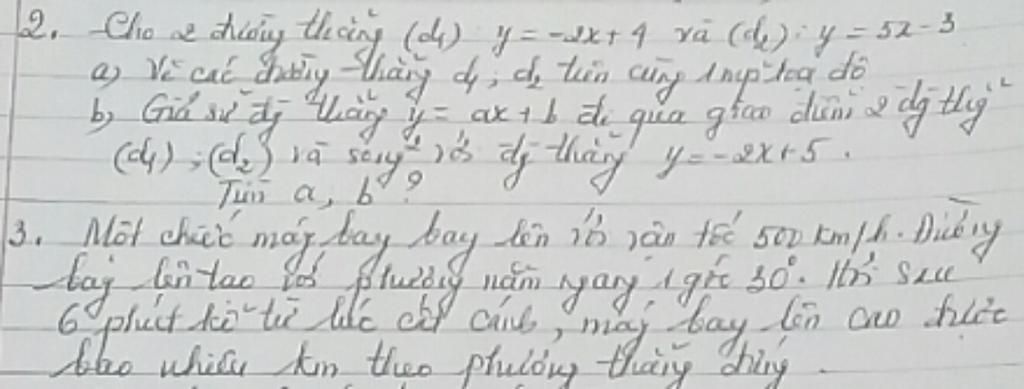 2. Cho 2 đường thẳng (d1) y = -2x + 4 và (d2): y = 5x - 3
a) Vẽ các đường thẳng d1; d2 trên cùng 1 mp tọa độ
b) Giả sử đg thẳng y = ax + b đi qua giao điểm 2 đg thg
(d1); (d2) và song² với đg thẳng y = -2x + 5.
Tìm a, b?
3. Một chiếc máy bay bay lên với vận tốc 500 km/h. Đường
bay lên tạo với phương nằm ngang 1 góc 30°. Hỏi sau
6 phút kể từ lúc cất cánh, máy bay lên cao được
bao nhiêu km theo phương thẳng đứng.